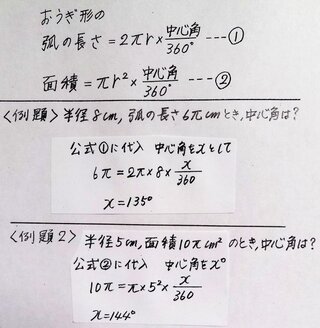 おうぎ形の
弧の長さ = 2πr × 中心角/360° --- ①
面積 = πr² × 中心角/360° --- ②
〈例題〉半径8cm, 弧の長さ6πcmとき,中心角は?
公式①に代入 中心角をxとして
6π = 2π × 8 × x/360
x = 135°
〈例題2〉半径5cm, 面積10πcm²のとき,中心角は?
公式②に代入 中心角をx°
10π = π × 5² × x/360
x = 144°